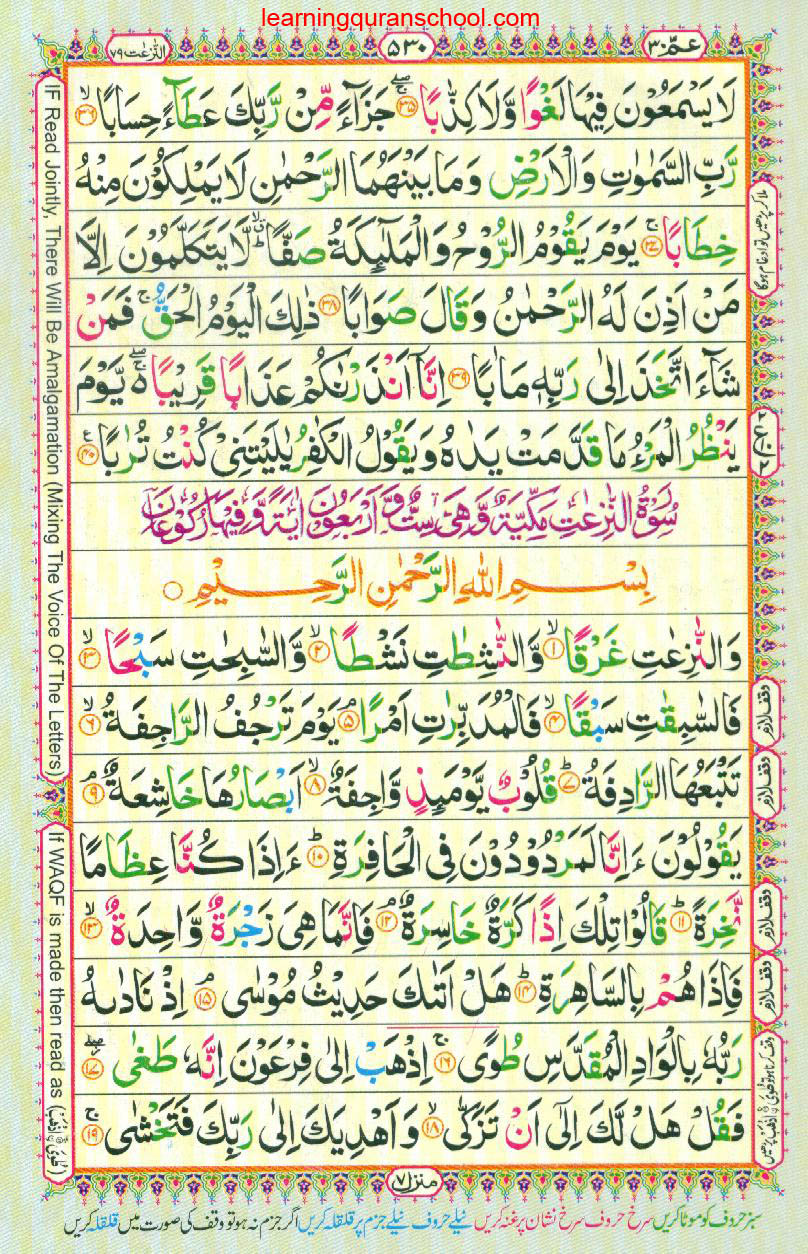 learningquranschool.com
النّٰزعٰت ٧٩
٥٣٠
عمّ ٣٠
لَا يَسْمَعُوْنَ فِيْهَا لَغْوًا وَّلَا كِذّٰبًا ۚ﴿۳۵﴾ جَزَآءً مِّنْ رَّبِّكَ عَطَآءً حِسَابًا ۙ﴿۳۶﴾
رَّبِّ السَّمٰوٰتِ وَالْاَرْضِ وَمَا بَيْنَهُمَا الرَّحْمٰنِ لَا يَمْلِكُوْنَ مِنْهُ
خِطَابًا ۚ﴿۳۷﴾ يَوْمَ يَقُوْمُ الرُّوْحُ وَالْمَلٰٓئِكَةُ صَفًّا ؕۙ لَّا يَتَكَلَّمُوْنَ اِلَّا
مَنْ اَذِنَ لَهُ الرَّحْمٰنُ وَقَالَ صَوَابًا ﴿۳۸﴾ ذٰلِكَ الْيَوْمُ الْحَقُّ ۚ فَمَنْ
شَآءَ اتَّخَذَ اِلٰى رَبِّهٖ مَاٰبًا ﴿۳۹﴾ اِنَّاۤ اَنْذَرْنٰكُمْ عَذَابًا قَرِيْبًا ۚۖ۬ يَّوْمَ
يَنْظُرُ الْمَرْءُ مَا قَدَّمَتْ يَدٰهُ وَيَقُوْلُ الْكٰفِرُ يٰلَيْتَنِيْ كُنْتُ تُرٰبًا ﴿۴۰﴾
سُوْرَةُ النّٰزِعٰتِ مَكِّيَّةٌ وَّهِيَ سِتٌّ وَّاَرْبَعُوْنَ اٰيَةً وَّفِيْهَا رُكُوْعَانِ
بِسْمِ اللهِ الرَّحْمٰنِ الرَّحِيْمِ
وَالنّٰزِعٰتِ غَرْقًا ۙ﴿۱﴾ وَّالنّٰشِطٰتِ نَشْطًا ۙ﴿۲﴾ وَّالسّٰبِحٰتِ سَبْحًا ۙ﴿۳﴾
فَالسّٰبِقٰتِ سَبْقًا ۙ﴿۴﴾ فَالْمُدَبِّرٰتِ اَمْرًا ۘ﴿۵﴾ يَوْمَ تَرْجُفُ الرَّاجِفَةُ ۙ﴿۶﴾
تَتْبَعُهَا الرَّادِفَةُ ؕ﴿۷﴾ قُلُوْبٌ يَّوْمَئِذٍ وَّاجِفَةٌ ۙ﴿۸﴾ اَبْصَارُهَا خَاشِعَةٌ ۘ﴿۹﴾
يَقُوْلُوْنَ ءَاِنَّا لَمَرْدُوْدُوْنَ فِي الْحَافِرَةِ ؕ﴿۱۰﴾ ءَاِذَا كُنَّا عِظَامًا
نَّخِرَةً ؕ﴿۱۱﴾ قَالُوْا تِلْكَ اِذًا كَرَّةٌ خَاسِرَةٌ ۘ﴿۱۲﴾ فَاِنَّمَا هِيَ زَجْرَةٌ وَّاحِدَةٌ ۙ﴿۱۳﴾
فَاِذَا هُمْ بِالسَّاهِرَةِ ؕ﴿۱۴﴾ هَلْ اَتٰىكَ حَدِيْثُ مُوْسٰى ۘ﴿۱۵﴾ اِذْ نَادٰىهُ
رَبُّهٗ بِالْوَادِ الْمُقَدَّسِ طُوًى ۚ﴿۱۶﴾ اِذْهَبْ اِلٰى فِرْعَوْنَ اِنَّهٗ طَغٰى ۖ﴿۱۷﴾
فَقُلْ هَلْ لَّكَ اِلٰۤى اَنْ تَزَكّٰى ۙ﴿۱۸﴾ وَاَهْدِيَكَ اِلٰى رَبِّكَ فَتَخْشٰى ۚ﴿۱۹﴾
IF Read Jointly, There Will Be Amalgamation (Mixing The Voice Of The Letters)
If WAQF is made then read as (طُوٰی ۝ اِذْهَبْ)
وقف لازم
وقف لازم
وقف لازم
وقف لازم
منزل ٧
سبز حروف کو موٹا کریں سرخ حروف سرخ نشان پر غنہ کریں نیلے حروف نیلے جزم پر قلقلہ کریں اگر جزم نہ ہو تو وقف کی صورت میں قلقلہ کریں